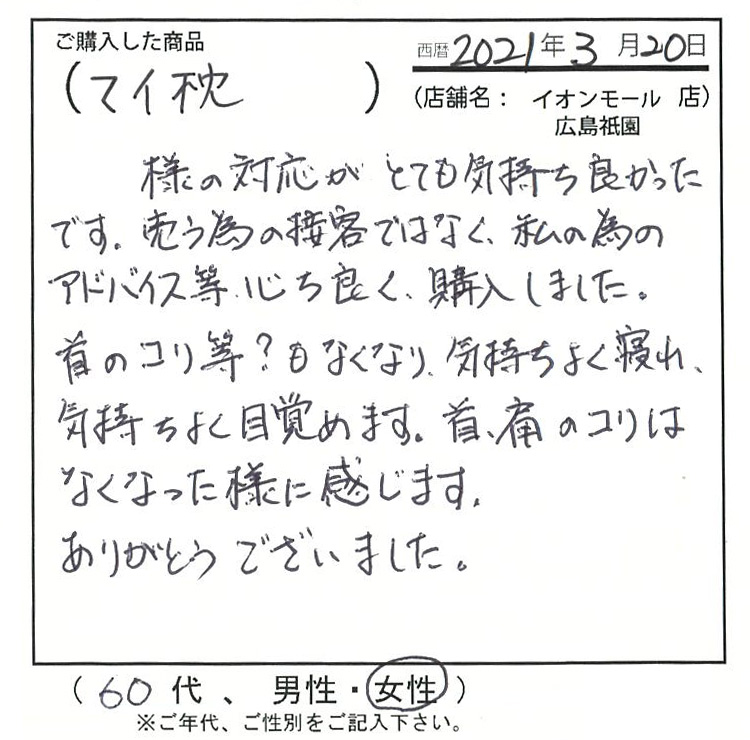 ご購入した商品
西暦2021年3月20日
(マイ枕)
(店舗名： イオンモール 店)
広島祇園
様の対応がとても気持ち良かった
です。売う為の接客ではなく、私の為の
アドバイス等、心ち良く、購入しました。
首のコリ等？もなくなり、気持ちよく寝れ、
気持ちよく目覚めます。首、肩のコリは
なくなった様に感じます。
ありがとうございました。
(60代、男性・女性)
※ご年代、ご性別をご記入下さい。